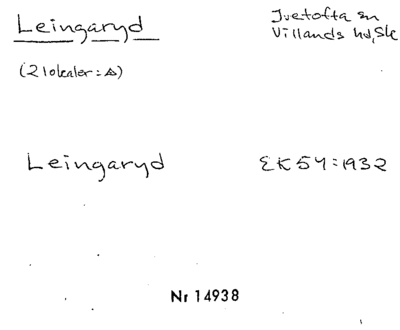 Leingaryd
Ivetofta sn
Villands hd, Sk
(2 lokaler: △)
Leingaryd
EK54:1932
Nr 14938